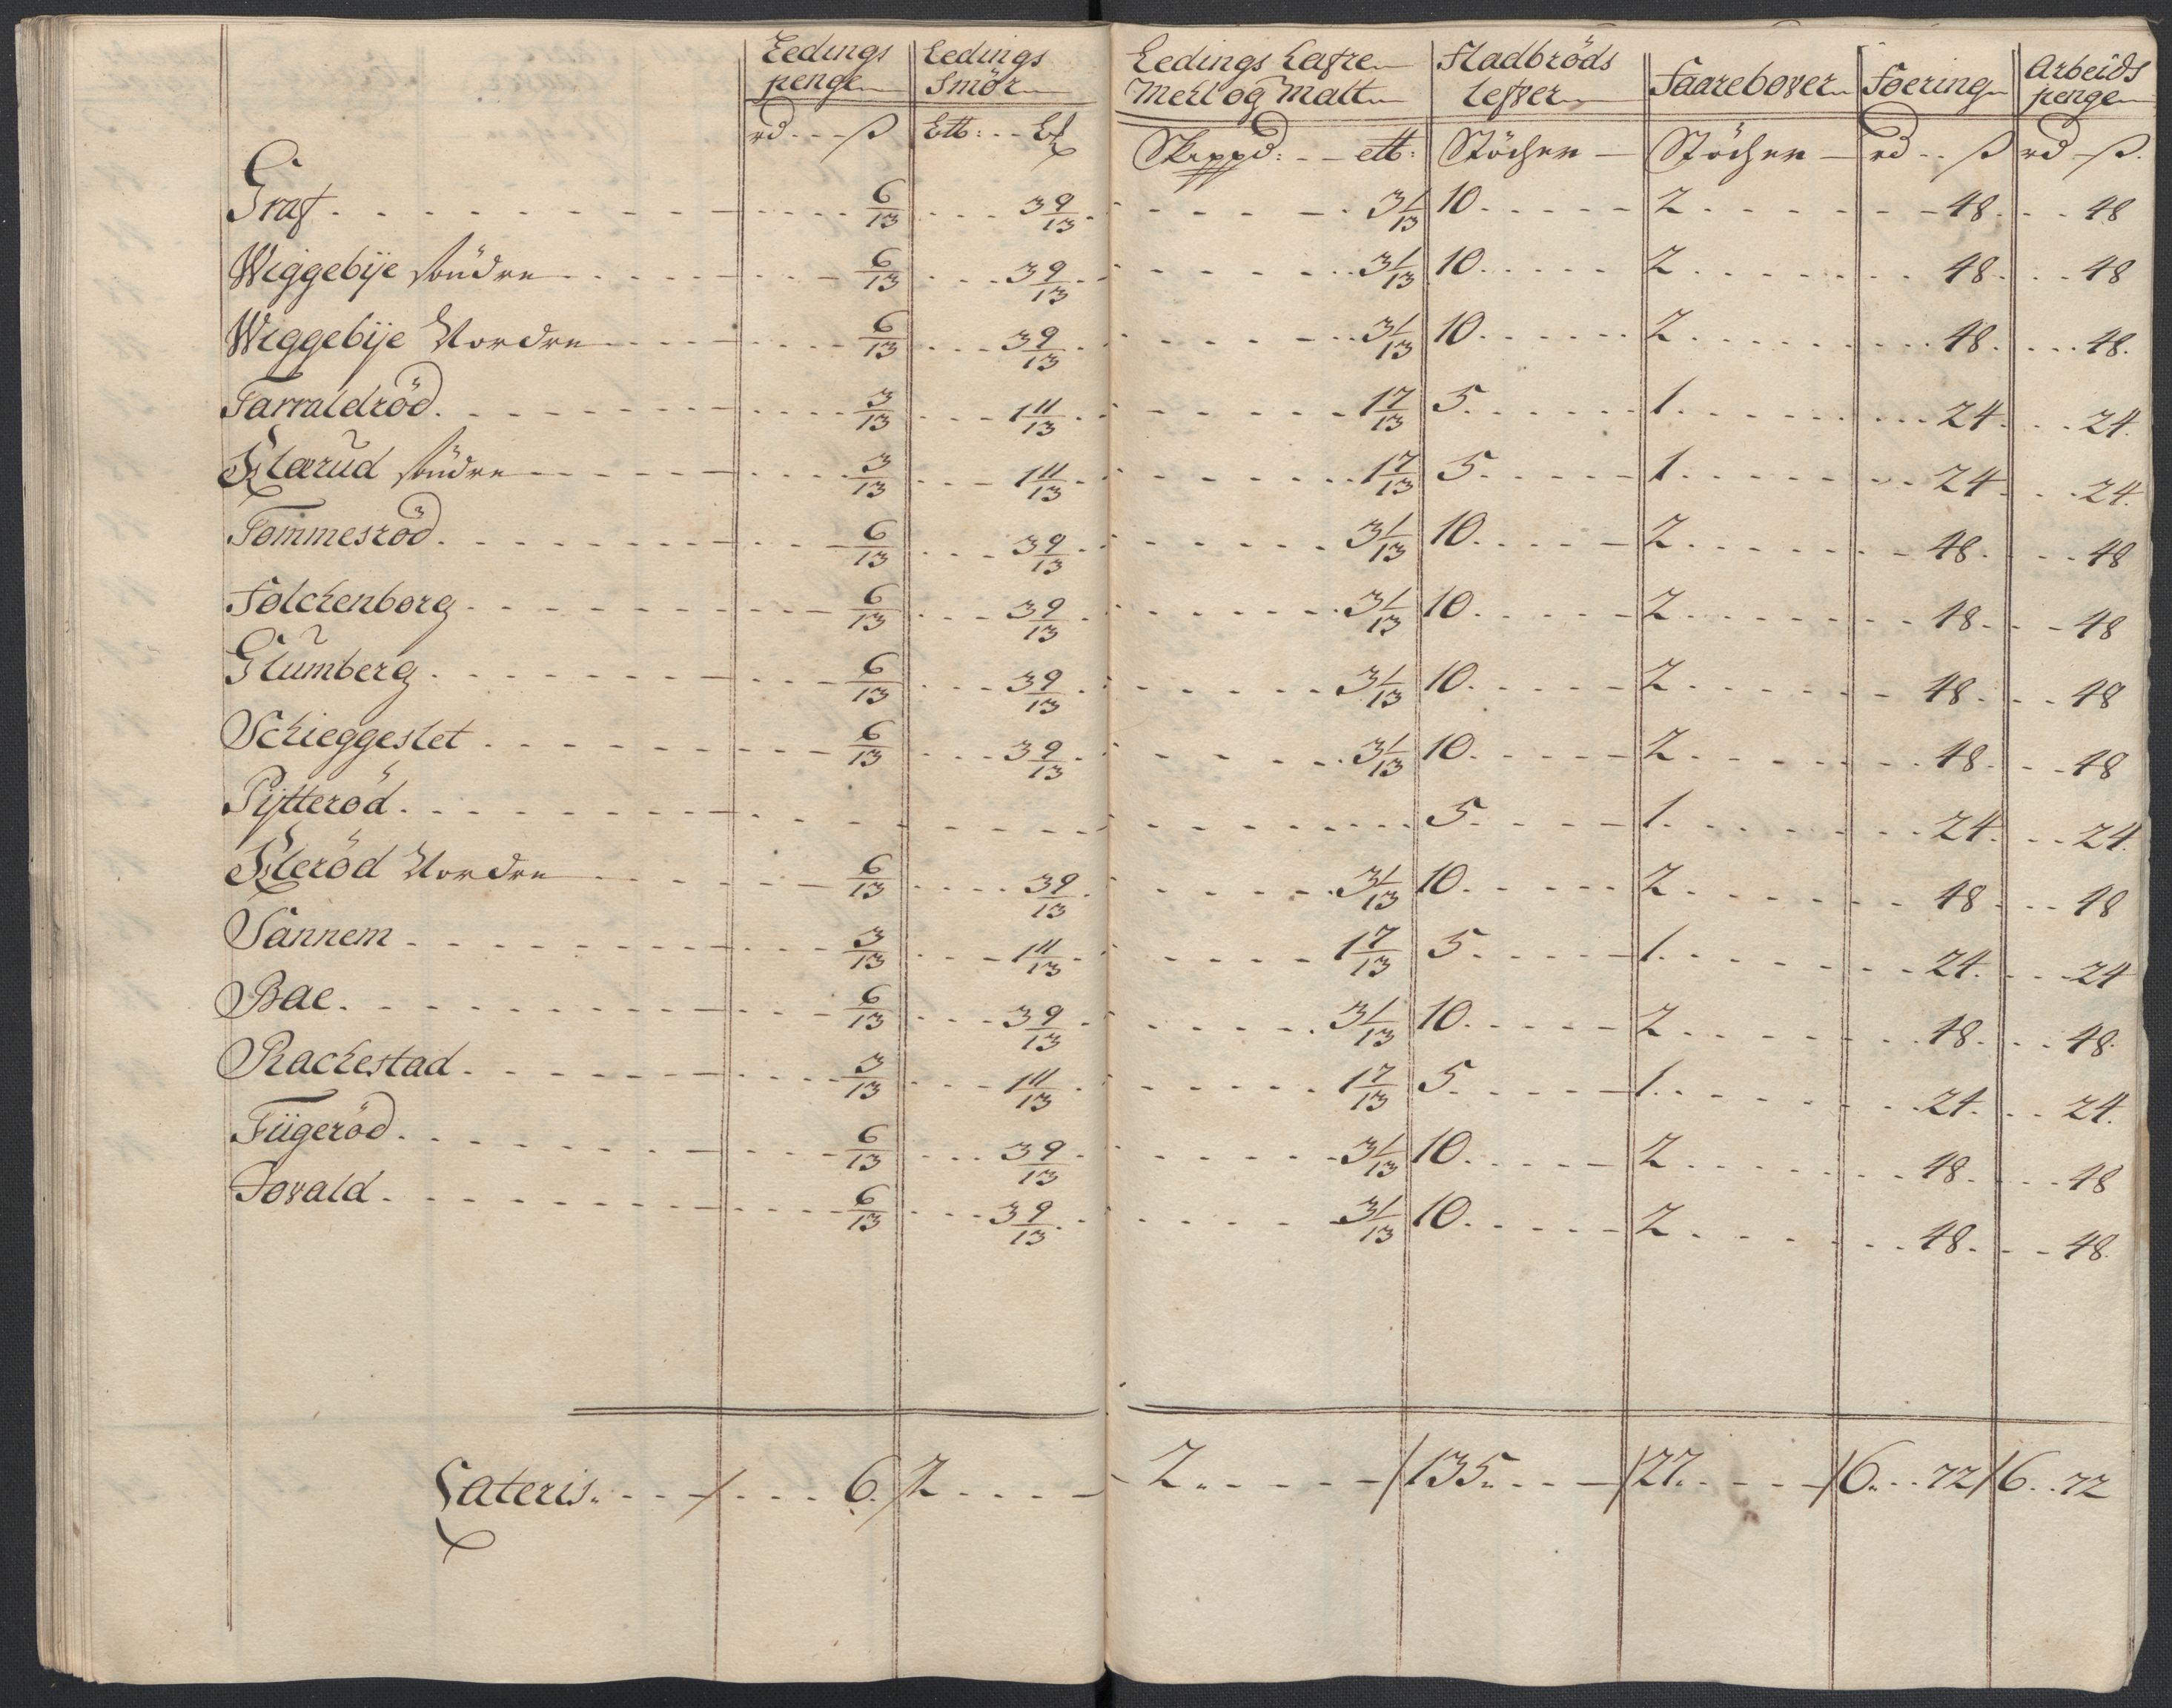 Ledings penge Ledings Smör Ledings Hafre Meel og Malt Fladbröds Lefver Faarebover Foering Arbeids penge
rd ß Skippd: Stöcher Stöcher rd ß rd ß
Graf 6/13 3 9/13 3 1/13 10 2 48 48
Wiggebÿe söndre 6/13 3 9/13 3 1/13 10 2 48 48
Wiggebÿe Nordre 6/13 3 9/13 3 1/13 10 2 48 48
Tarraldröd 3/13 1 11/13 1 7/13 5 1 24 24
Klarud söndre 3/13 1 11/13 1 7/13 5 1 24 24
Tommesröd 6/13 3 9/13 3 1/13 10 2 48 48
Folckenborg 6/13 3 9/13 3 1/13 10 2 48 48
Glumberg 6/13 3 9/13 3 1/13 10 2 48 48
Schieggestet 6/13 3 9/13 3 1/13 10 2 48 48
Pÿtteröd 5 1 24 24
Kleröd Nordre 6/13 3 9/13 3 1/13 10 2 48 48
Sannem 3/13 1 11/13 1 7/13 5 1 24 24
Bae 6/13 3 9/13 3 1/13 10 2 48 48
Rackestad 3/13 1 11/13 1 7/13 5 1 24 24
Fügeröd 6/13 3 9/13 3 1/13 10 2 48 48
Tovald 6/13 3 9/13 3 1/13 10 2 48 48
Lateris 6 2 2 135 27 6 72 6 72